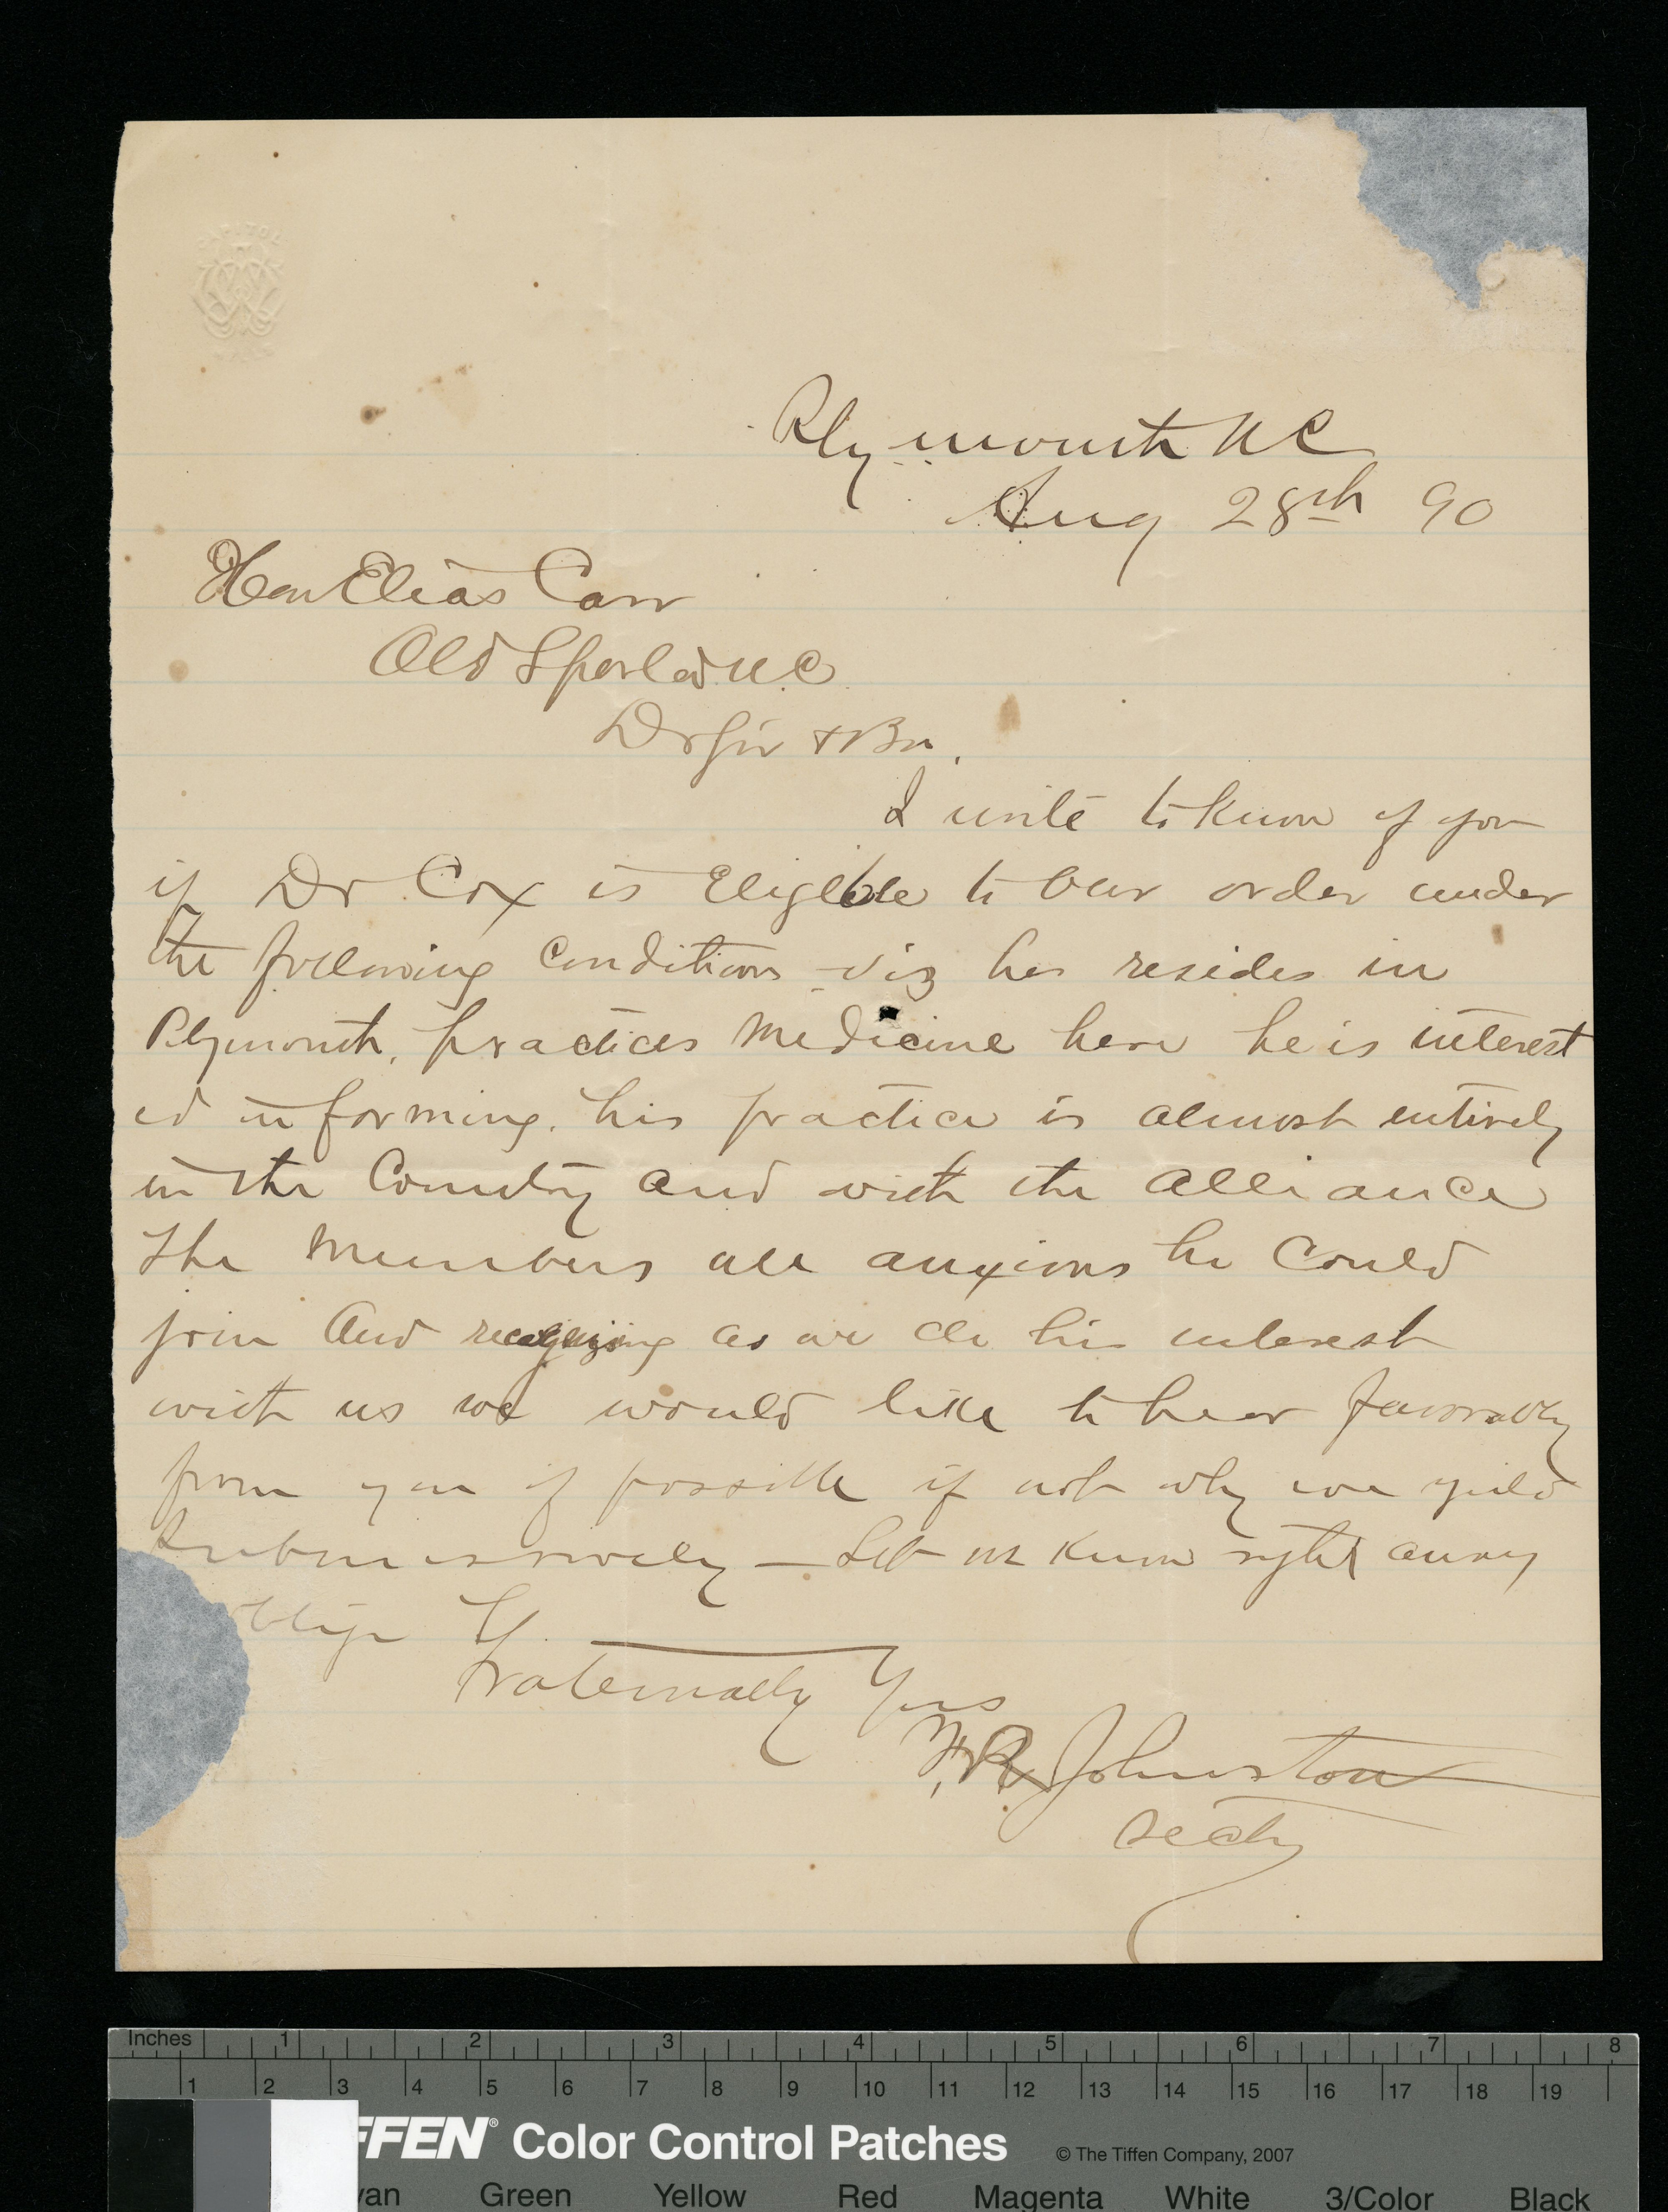 CAPITOL
Plymouth NC
Aug 28th 90
Hon Elias Carr
Old Sparta N.C.
Dr Sir & Bro,
I write to know of you
if Dr Cox is Eligible to Our order under
the following conditions viz he resides in
Plymouth, practices Medicine here he is interest
ed in farming. his practice is almost entirely
in the Country and with the Alliance
The Members all anxious he Could
join And recognizing as we do his interest
with us we would like to hear favorably
from you if possible if not why we yield
Submissively — Let me know right away
blige
Fraternally Yours
Johnston
Secty
Inches 1 2 3 4 5 6 7 8
1 2 3 4 5 6 7 8 9 10 11 12 13 14 15 16 17 18 19
FFEN® Color Control Patches © The Tiffen Company, 2007
yan Green Yellow Red Magenta White 3/Color Black